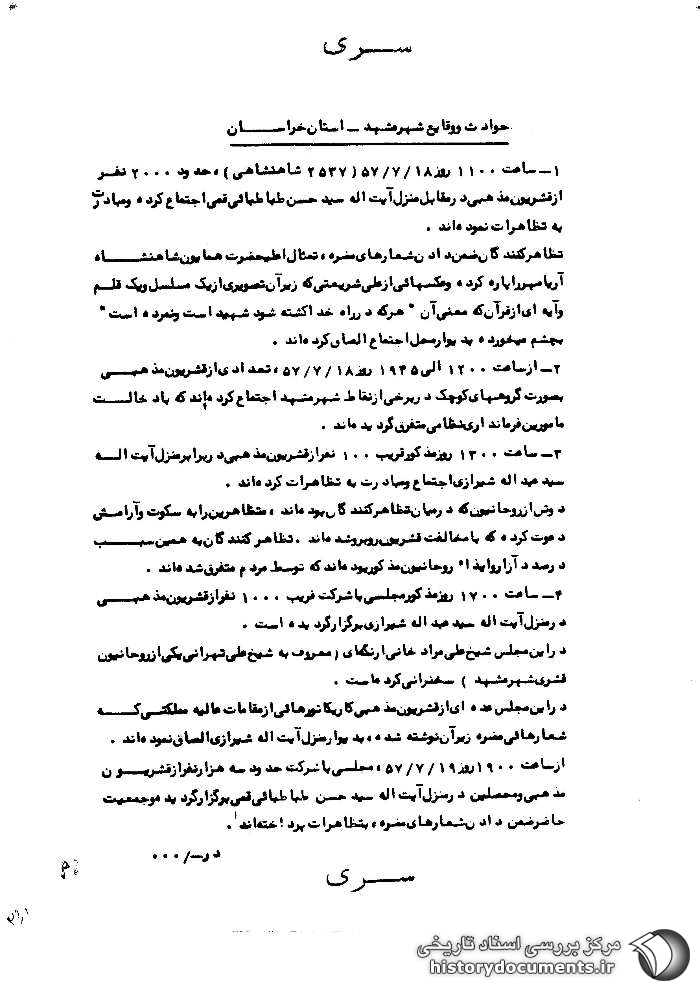 سری
حوادث ووقایع شهرمشهد – استان خراسان
۱– ساعت ۱۱۰۰ روز ۵۷/۷/۱۸ (۲۵۳۷ شاهنشاهی)، حدود ۲۰۰۰ نفر
ازقشریون مذهبی درمقابل منزل آیت اله سید حسن طباطبائی قمی اجتماع کرده ومبادرت
به تظاهرات نموده اند .
تظاهرکنندگان ضمن دادن شعارهای مضره، تمثال اعلیحضرت همایون شاهنشاه
آریامهرراپاره کرده وعکسهائی ازعلی شریعتی که زیرآن تصویری ازیک مسلسل ویک قلم
وآیه ای ازقرآن که معنی آن " هرکه درراه خدا کشته شود شهید است ونمرده است "
بچشم میخورده بدیوارمحل اجتماع الصاق کرده اند .
۲– ازساعت ۱۲۰۰ الی ۱۹۴۵ روز ۵۷/۷/۱۸، تعدادی ازقشریون مذهبی
بصورت گروههای کوچک دربرخی ازنقاط شهرمشهد اجتماع کرده اند که بادخالت
مامورین فرمانداری نظامی متفرق گردیده اند .
۳– ساعت ۱۳۰۰ روزمذکورقریب ۱۰۰ نفرازقشریون مذهبی دربرابرمنزل آیت اله
سید عبد اله شیرازی اجتماع ومبادرت به تظاهرات کرده اند .
دوتن ازروحانیون که درمیان تظاهرکنندگان بوده اند، متظاهرین رابه سکوت وآرامش
دعوت کرده که بامخالفت قشریون روبروشده اند . تظاهرکنندگان به همین سبب
درصدد آزاروایذاء روحانیون مذکوربوده اند که توسط مردم متفرق شده اند .
۴– ساعت ۱۷۰۰ روزمذکورمجلسی باشرکت قریب ۱۰۰۰ نفرازقشریون مذهبی
درمنزل آیت اله سید عبد اله شیرازی برگزارگردیده است .
دراین مجلس شیخ علی مراد خانی ارنگه‌ای (معروف به شیخ علی تهرانی یکی ازروحانیون
قشری شهرمشهد ) سخنرانی کرده است .
دراین مجلس عده ای ازقشریون مذهبی کاریکاتورهائی ازمقامات عالیه مملکتی که
شعارهائی مضره زیرآن نوشته شده، به دیوارمنزل آیت اله شیرازی الصاق نموده اند .
ازساعت ۱۹۰۰ روز ۵۷/۷/۱۹، مجلسی باشرکت حدود سه هزارنفرازقشریون
مذهبی ومحصلین درمنزل آیت اله سید حسن طباطبائی قمی برگزارگردیده وجمعیت
حاضرضمن دادن شعارهای مضره، بتظاهرات پرداخته اند .
در–/۰۰۰
سری
مرکز بررسی اسناد تاریخی
historydocuments.ir